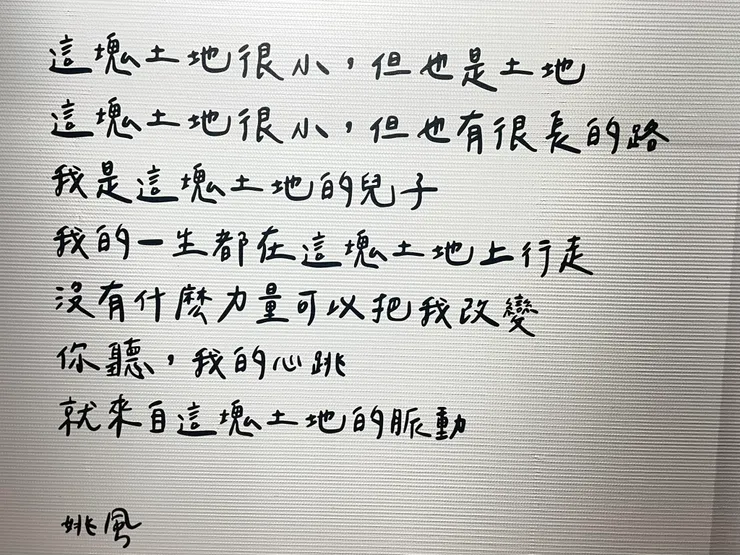 這塊土地很小，但也是土地
這塊土地很小，但也有很長的路
我是這塊土地的兒子
我的一生都在這塊土地上行走
沒有什麼力量可以把我改變
你聽，我的心跳
就來自這塊土地的脈動
姚風